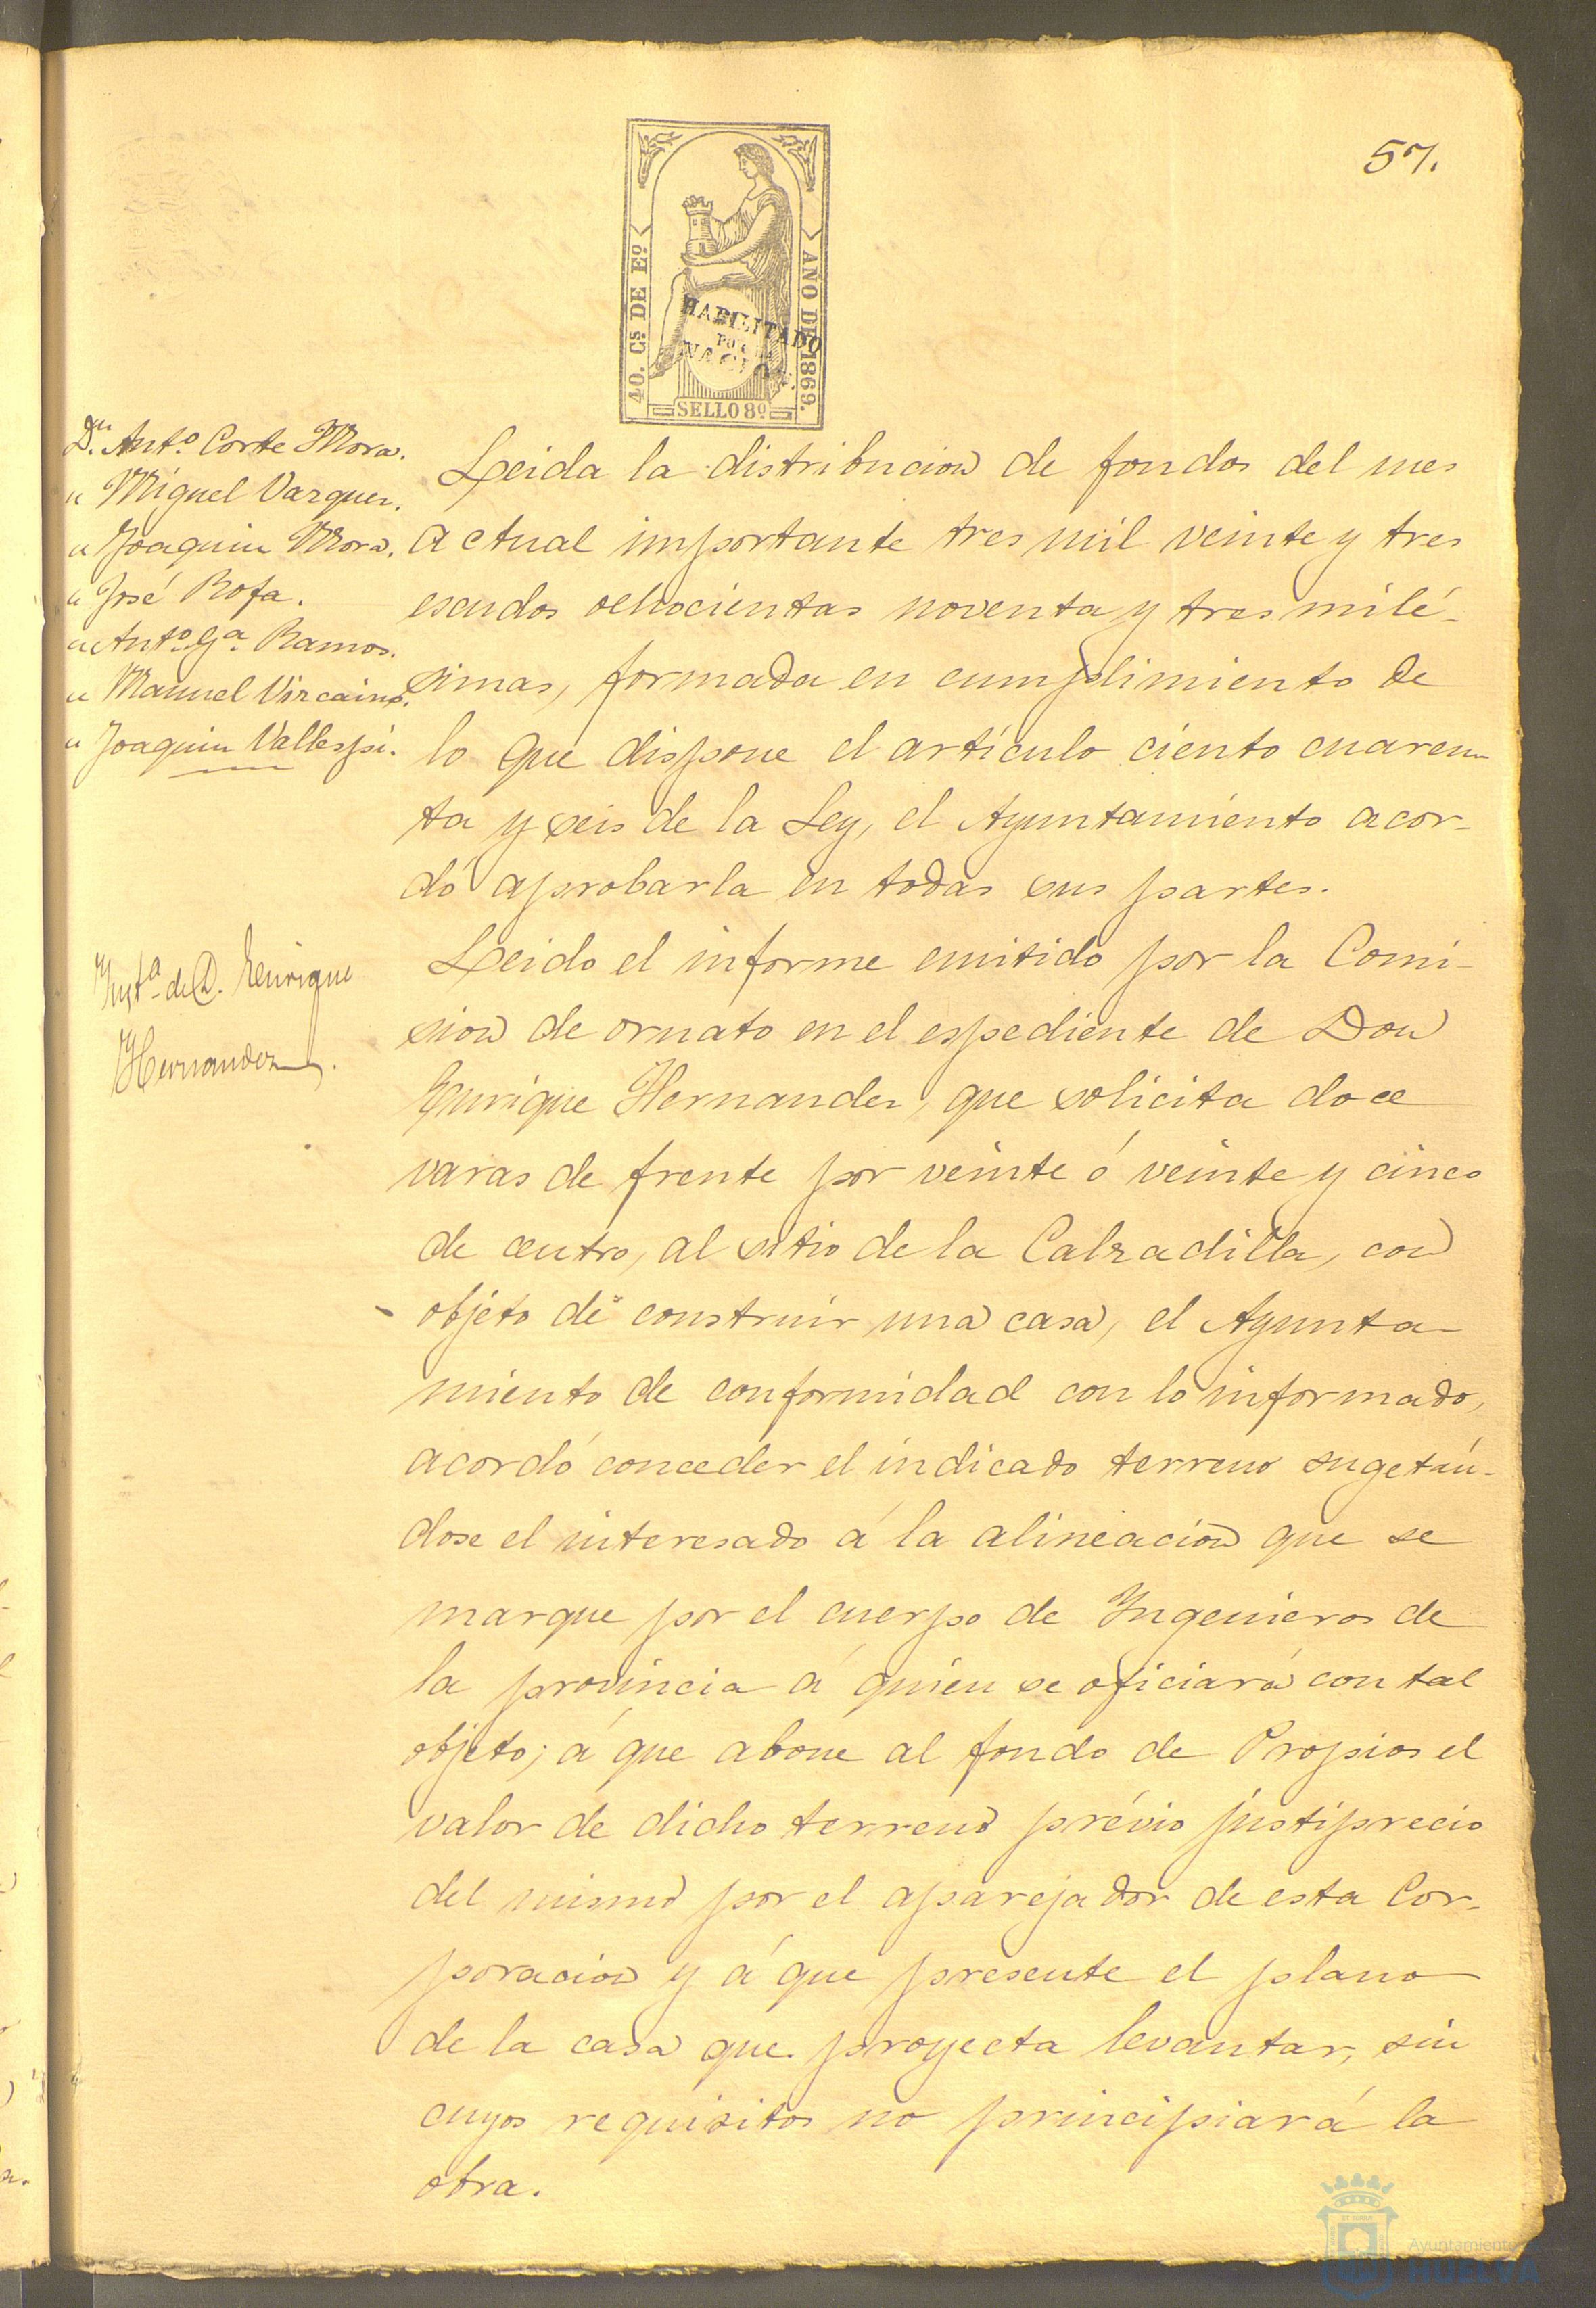 57.
40. Cs DE Eº
AÑO DE 1869.
HABILITADO
POR LA
NACION.
SELLO 8º
Dn. Antº. Corte Mora.
" Miguel Vazquez.
" Joaquin Mora.
" José Rofa.
" Antº. Gª. Ramos.
" Manuel Vizcaino.
" Joaquin Vallespi.
Leida la distribucion de fondos del mes
actual importante tres mil veinte y tres
escudos ochocientas noventa y tres milé-
simas, formada en cumplimiento de
lo que dispone el artículo ciento cuaren-
ta y seis de la Ley, el Ayuntamiento acor-
dó aprobarla en todas sus partes.
Instª. de D. Enrique
Hernandez.
Leido el informe emitido por la Comi-
sion de ornato en el espediente de Don
Enrique Hernandez, que solicita doce
varas de frente por veinte ó veinte y cinco
de centro, al sitio de la Calzadilla, con
objeto de construir una casa, el Ayunta-
miento de conformidad con lo informado,
acordó conceder el indicado terreno sugetán-
dose el interesado á la alineacion que se
marque por el cuerpo de Yngenieros de
la provincia á quien se oficiará con tal
objeto; á que abone al fondo de Propios el
valor de dicho terreno prévio justiprecio
del mismo por el aparejador de esta Cor-
poracion y á que presente el plano
de la casa que proyecta levantar, sin
cuyos requisitos no principiará la
obra.
Ayuntamiento
HUELVA